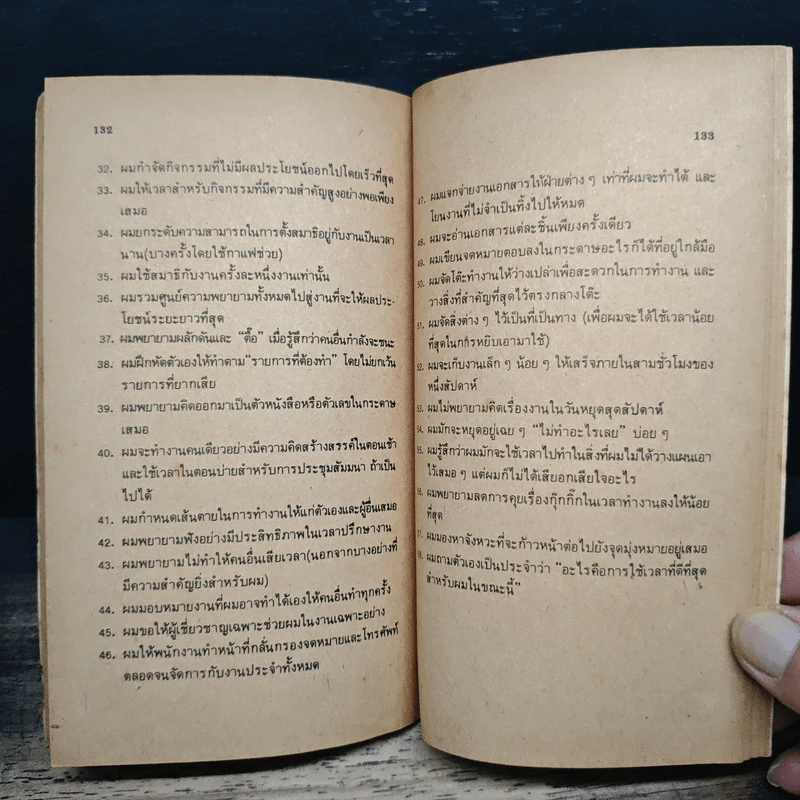 132
32. ผมกำจัดกิจกรรมที่ไม่มีผลประโยชน์ออกไปโดยเร็วที่สุด
33. ผมให้เวลาสำหรับกิจกรรมที่มีความสำคัญสูงอย่างพอเพียง
เสมอ
34. ผมยกระดับความสามารถในการตั้งสมาธิอยู่กับงานเป็นเวลา
นาน(บางครั้งโดยใช้กาแฟช่วย)
35. ผมใช้สมาธิกับงานครั้งละหนึ่งงานเท่านั้น
36. ผมรวมศูนย์ความพยายามทั้งหมดไปสู่งานที่จะให้ผลประ-
โยชน์ระยะยาวที่สุด
37. ผมพยายามผลักดันและ “ตื๊อ” เมื่อรู้สึกว่าคนอื่นกำลังจะชนะ
38. ผมฝึกหัดตัวเองให้ทำตาม“รายการที่ต้องทำ” โดยไม่ยกเว้น
รายการที่ยากเสีย
39. ผมพยายามคิดออกมาเป็นตัวหนังสือหรือตัวเลขในกระดาษ
เสมอ
40. ผมจะทำงานคนเดียวอย่างมีความคิดสร้างสรรค์ในตอนเช้า
และใช้เวลาในตอนบ่ายสำหรับการประชุมสัมมนา ถ้าเป็น
ไปได้
41. ผมกำหนดเส้นตายในการทำงานให้แก่ตัวเองและผู้อื่นเสมอ
42. ผมพยายามฟังอย่างมีประสิทธิภาพในเวลาปรึกษางาน
43. ผมพยายามไม่ทำให้คนอื่นเสียเวลา(นอกจากบางอย่างที่
มีความสำคัญยิ่งสำหรับผม)
44. ผมมอบหมายงานที่ผมอาจทำได้เองให้คนอื่นทำทุกครั้ง
45. ผมขอให้ผู้เชี่ยวชาญเฉพาะช่วยผมในงานเฉพาะอย่าง
46. ผมให้พนักงานทำหน้าที่กลั่นกรองจดหมายและโทรศัพท์
ตลอดจนจัดการกับงานประจำทั้งหมด
133
47. ผมแจกจ่ายงานเอกสารให้ฝ่ายต่าง ๆ เท่าที่ผมจะทำได้ และ
โยนงานที่ไม่จำเป็นทิ้งไปให้หมด
48. ผมจะอ่านเอกสารแต่ละชิ้นเพียงครั้งเดียว
49. ผมเขียนจดหมายตอบลงในกระดาษอะไรก็ได้ที่อยู่ใกล้มือ
50. ผมจัดโต๊ะทำงานให้ว่างเปล่าเพื่อสะดวกในการทำงาน และ
วางสิ่งที่สำคัญที่สุดไว้ตรงกลางโต๊ะ
51. ผมจัดสิ่งต่าง ๆ ไว้เป็นที่เป็นทาง (เพื่อผมจะได้ใช้เวลาน้อย
ที่สุดในการหยิบเอามาใช้)
52. ผมจะเก็บงานเล็ก ๆ น้อย ๆ ให้เสร็จภายในสามชั่วโมงของ
หนึ่งสัปดาห์
53. ผมไม่พยายามคิดเรื่องงานในวันหยุดสุดสัปดาห์
54. ผมมักจะหยุดอยู่เฉย ๆ “ไม่ทำอะไรเลย” บ่อย ๆ
55. ผมรู้สึกว่าผมมักจะใช้เวลาไปทำในสิ่งที่ผมไม่ได้วางแผนเอา
ไว้เสมอ ๆ แต่ผมก็ไม่ได้เสียอกเสียใจอะไร
56. ผมพยายามลดการคุยเรื่องกุ๊กกิ๊กในเวลาทำงานลงให้น้อย
ที่สุด
57. ผมมองหาจังหวะที่จะก้าวหน้าต่อไปยังจุดมุ่งหมายอยู่เสมอ
58. ผมถามตัวเองเป็นประจำว่า “อะไรคือการใช้เวลาที่ดีที่สุด
สำหรับผมในขณะนี้”